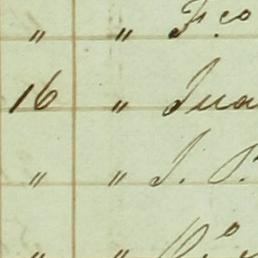 " " F.co
16 " Jua
" " J. P.
" "